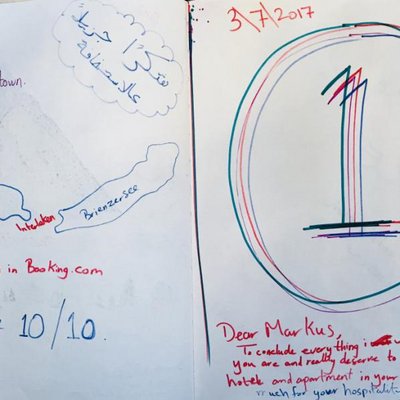 شكرًا جزيلاً
عالاستضافة
town.
Brienzersee
Interlaken
in Booking.com
10/10.
3\7\2017
1
Dear Markus,
To conclude everything i
you are and really deserve to
and apartment in your
much for your hospitalit